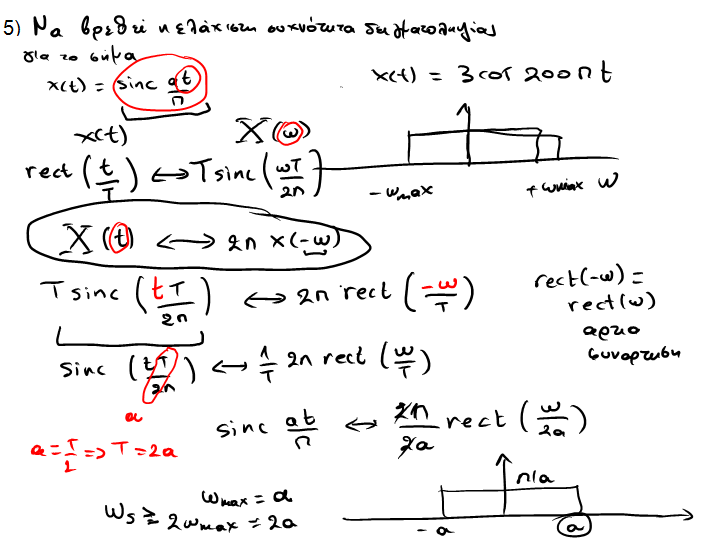 5) Να βρεθεί η ελάχιστη συχνότητα δειγματοληψίας
για το σήμα
x(t) = sinc at/π
x(t) = 3 cos 200πt
x(t) X(ω)
rect(t/T) ↔ T sinc(ωT/2π)
-ωmax +ωmax ω
X(t) ↔ 2π x(-ω)
T sinc(tT/2π) ↔ 2π rect(-ω/T)
rect(-ω) =
rect(ω)
αρτια
συναρτηση
sinc(tT/2π) ↔ 1/T 2π rect(ω/T)
a
a = T/2 => T = 2a
sinc at/π ↔ 2π/2a rect(ω/2a)
π/a
-a a
ωmax = a
ωs ≥ 2ωmax = 2a